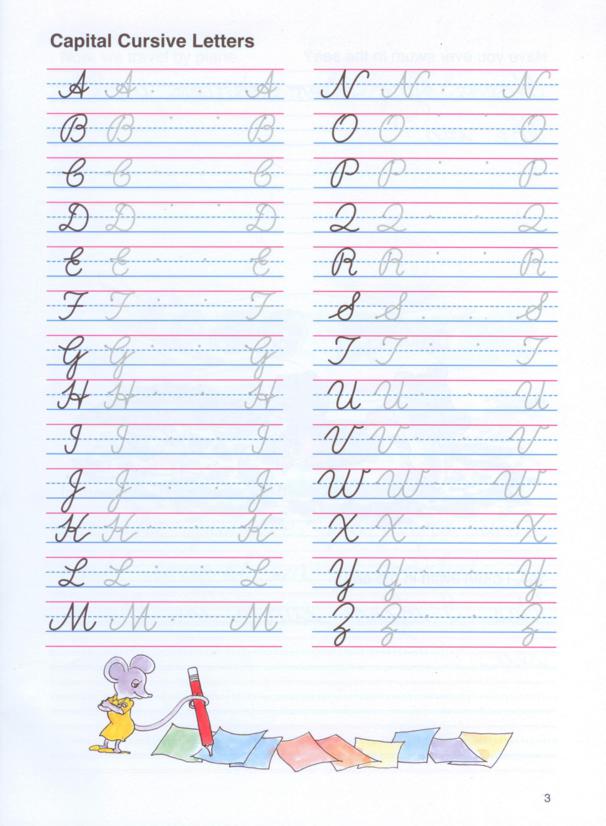 Capital Cursive Letters
A A A
B B B
C C C
D D D
E E E
F F F
G G G
H H H
I I I
J J J
K K K
L L L
M M M
N N N
O O O
P P P
Q Q Q
R R R
S S S
T T T
U U U
V V V
W W W
X X X
Y Y Y
Z Z Z
3